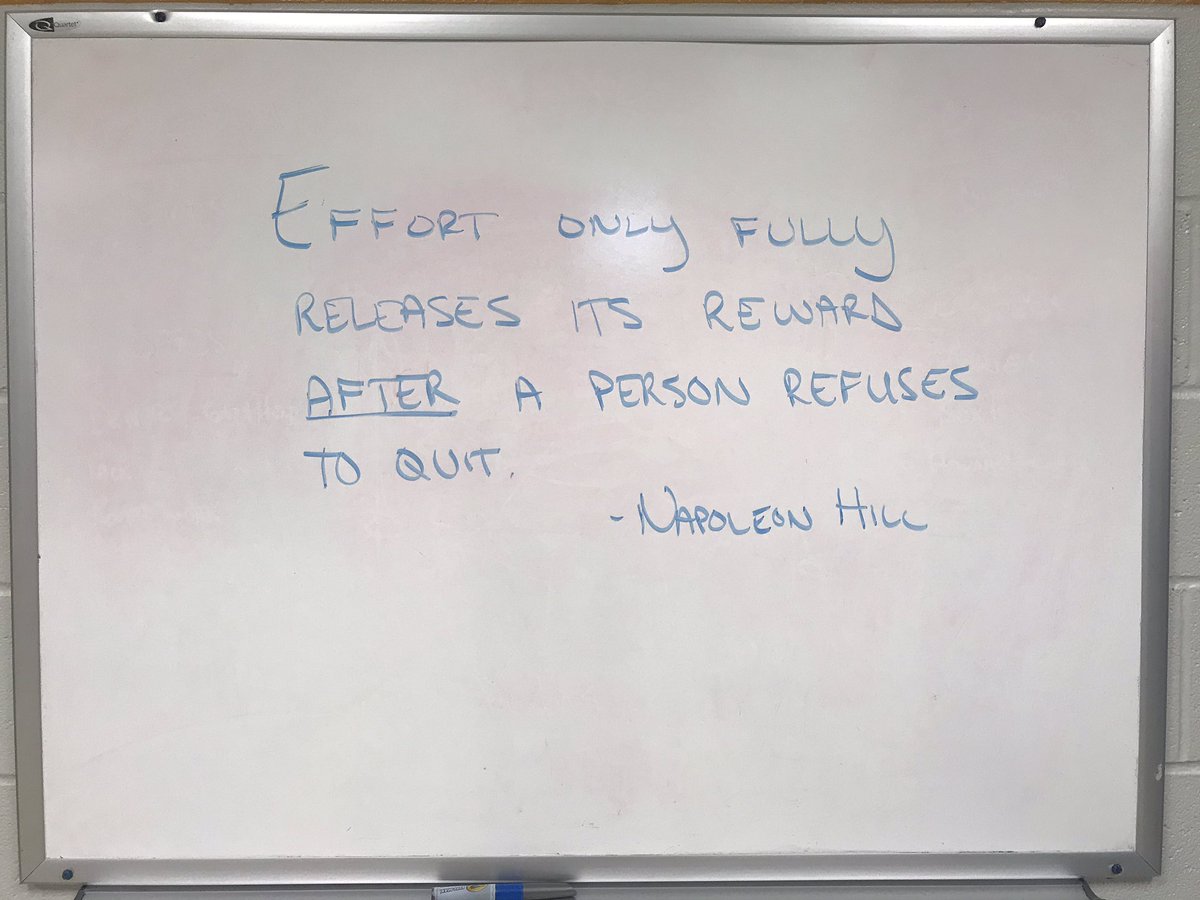 Quartet
EFFORT ONLY FULLY
RELEASES ITS REWARD
AFTER A PERSON REFUSES
TO QUIT.
-NAPOLEON HILL